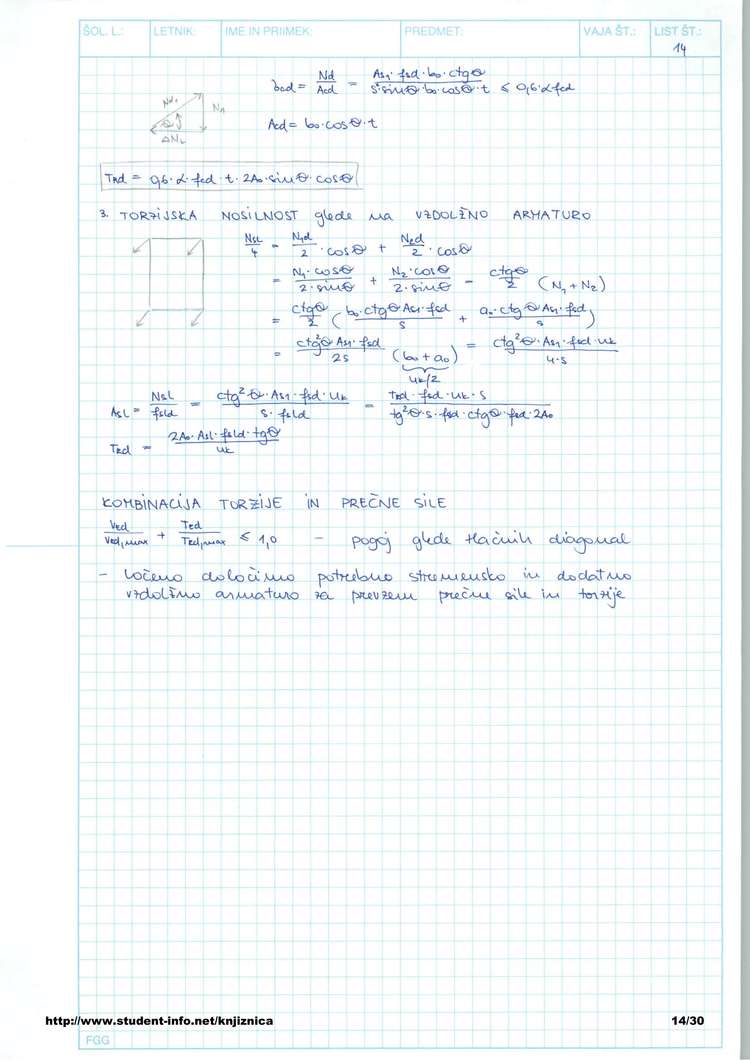 ŠOL. L.: LETNIK: IME IN PRIIMEK: PREDMET: VAJA ŠT.: LIST ŠT.:
14
σcd = Nd/Acd = As1·fsd·b0·ctgθ / s·sinθ·b0·cosθ·t ≤ 0,6·α·fcd
Nd1 N1 θ ΔNL
Acd = b0·cosθ·t
TRd = 0,6·α·fcd·t·2A0·sinθ·cosθ
3. TORZIJSKA NOSILNOST glede na VZDOLŽNO ARMATURO
NSL/4 = N1d/2 · cosθ + N2d/2 · cosθ
= N1·cosθ / 2·sinθ + N2·cosθ / 2·sinθ = ctgθ/2 (N1 + N2)
= ctgθ/2 (b0·ctgθ·As1·fsd / s + a0·ctgθ·As1·fsd / s)
= ctg²θ·As1·fsd / 2s (b0 + a0) = ctg²θ·As1·fsd·uk / 4·s
uk/2
ASL = NSL/fsld = ctg²θ·As1·fsd·uk / s·fsld = TRd·fsd·uk·s / tg²θ·s·fsd·ctgθ·fsd·2A0
TRd = 2A0·Asl·fsld·tgθ / uk
KOMBINACIJA TORZIJE IN PREČNE SILE
Ved/Ved,max + Ted/Ted,max ≤ 1,0 – pogoj glede tlačnih diagonal
– Ločeno določimo potrebno stremensko in dodatno
vzdolžno armaturo za prevzem prečne sile in torzije
http://www.student-info.net/knjiznica 14/30
FGG